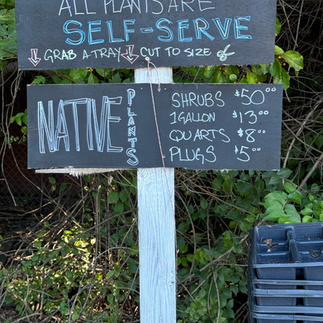 ALL PLANTS ARE
SELF-SERVE
GRAB A TRAY CUT TO SIZE
NATIVE PLANTS
SHRUBS $50.00
1 GALLON $13.00
QUARTS $8.00
PLUGS $5.00